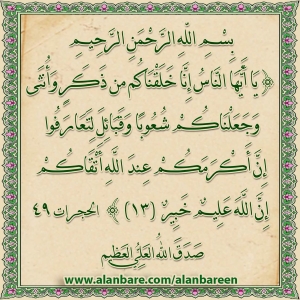 بِسْمِ اللَّهِ الرَّحْمَنِ الرَّحِيمِ
﴿ يَا أَيُّهَا النَّاسُ إِنَّا خَلَقْنَاكُم مِن ذَكَرٍ وَأُنثَى
وَجَعَلْنَاكُمْ شُعُوبًا وَقَبَائِلَ لِتَعَارَفُوا
إِنَّ أَكْرَمَكُمْ عِندَ اللَّهِ أَتْقَاكُمْ
إِنَّ اللَّهَ عَلِيمٌ خَبِيرٌ (١٣) ﴾ الحجرات ٤٩
صَدَقَ اللَّهُ الْعَلِيُّ الْعَظِيمُ
www.alanbare.com/alanbareen